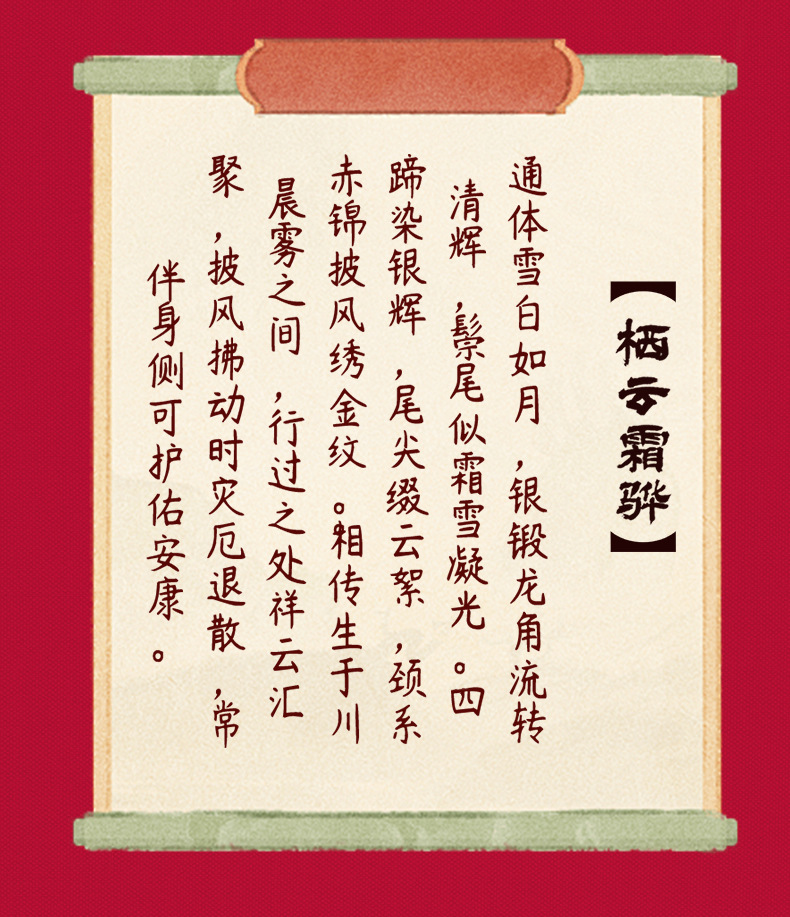 【栖云霜骅】
通体雪白如月，银锻龙角流转
清辉，鬃尾似霜雪凝光。四
蹄染银辉，尾尖缀云絮，颈系
赤锦披风绣金纹。相传生于川
晨雾之间，行过之处祥云汇
聚，披风拂动时灾厄退散，常
伴身侧可护佑安康。